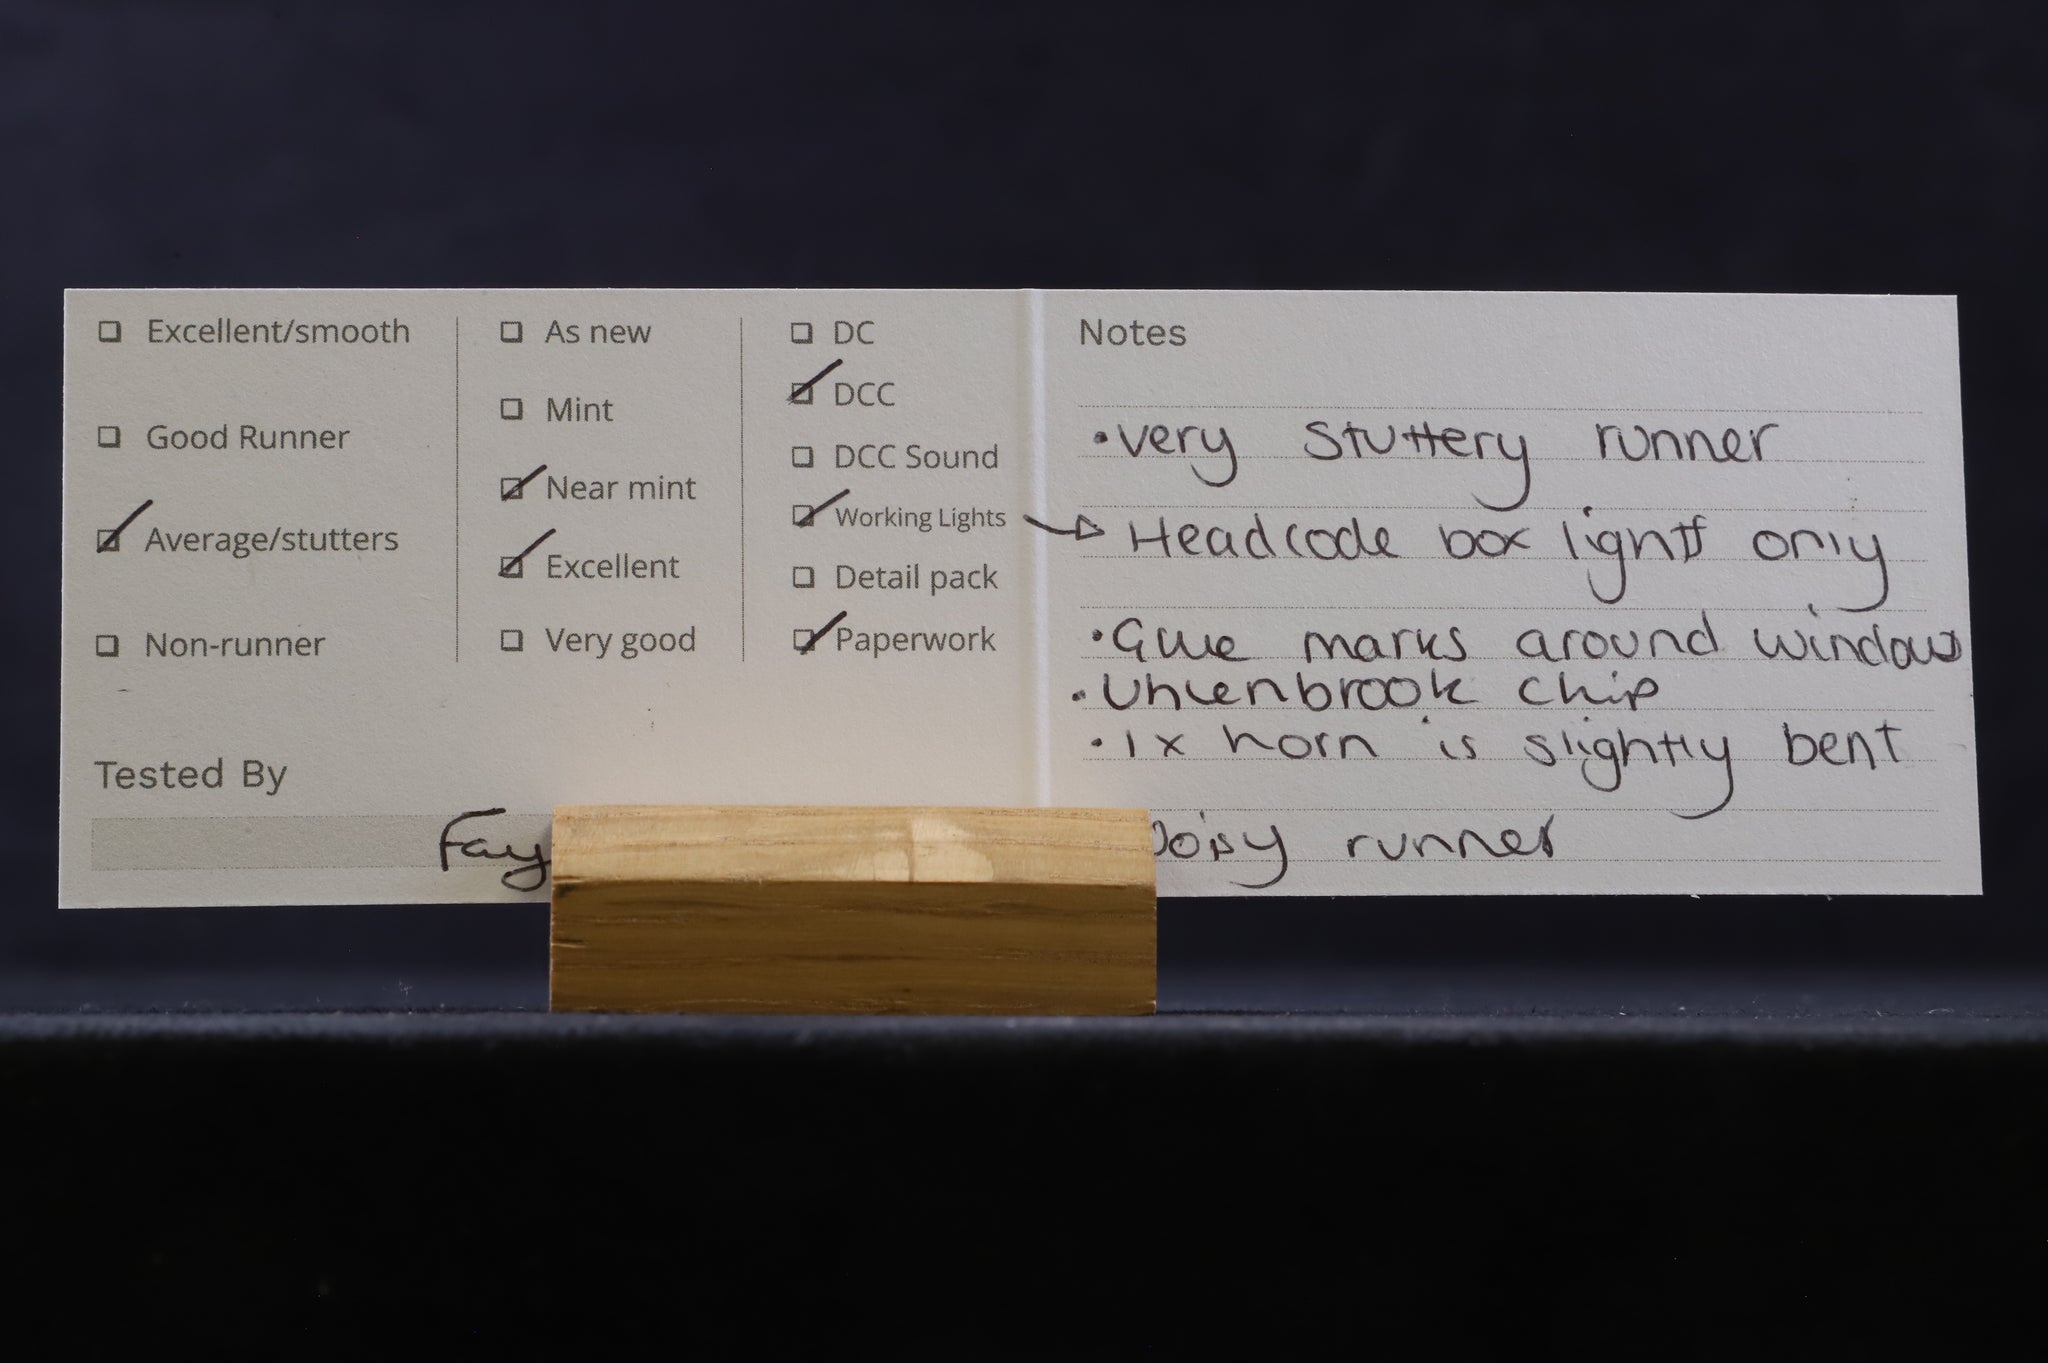 ☐ Excellent/smooth
☐ Good Runner
☑ Average/stutters
☐ Non-runner
☐ As new
☐ Mint
☑ Near mint
☑ Excellent
☐ Very good
☐ DC
☑ DCC
☐ DCC Sound
☑ Working Lights
☐ Detail pack
☑ Paperwork
Tested By
Fay
Notes
• very stuttery runner
→ Headcode box lights only
• Glue marks around windows
• Uhlenbrook chip
• 1x horn is slightly bent
Noisy runner